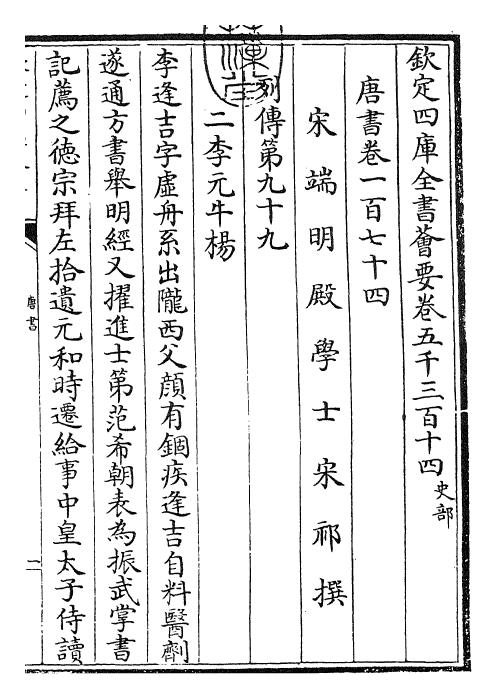 欽定四庫全書薈要卷五千三百十四 史部
唐書卷一百七十四
宋端明殿學士宋祁撰
列傳第九十九
二李元牛楊
李逢吉字虛舟系出隴西父顔有錮疾逢吉自料醫劑
遂通方書舉明經又擢進士第范希朝表為振武掌書
記薦之徳宗拜左拾遺元和時遷給事中皇太子侍讀
唐書